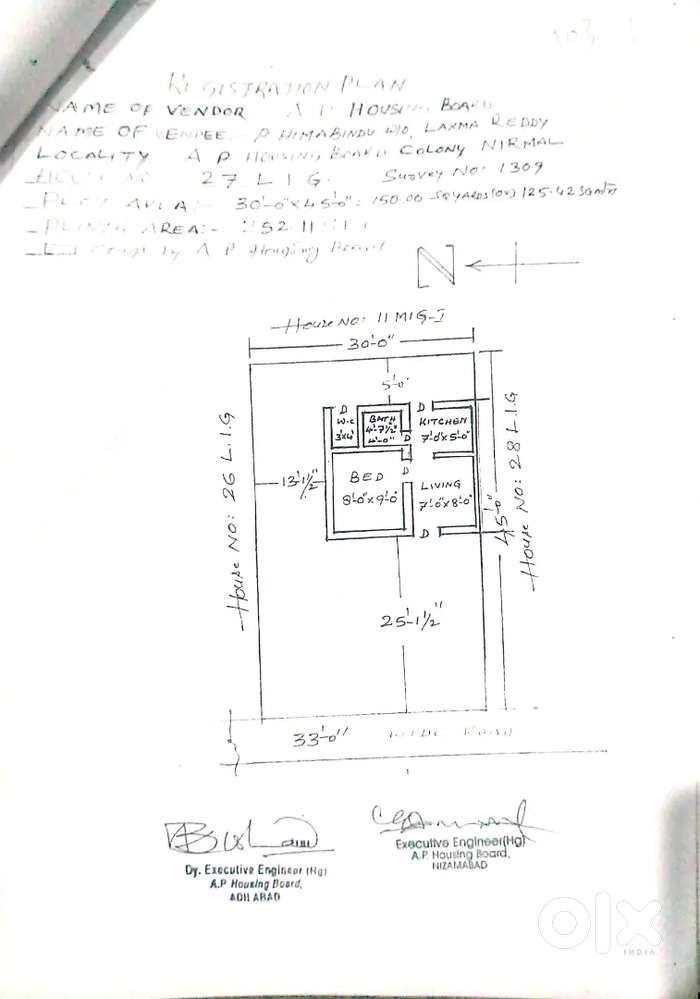 REGISTRATION PLAN
NAME OF VENDOR A P HOUSING BOARD
NAME OF VENDEE P HIMABINDU W/O, LAXMA REDDY
LOCALITY A P HOUSING BOARD COLONY NIRMAL
HOUSE NO 27 L I G. SURVEY NO: 1309
PLOT AREA:- 30'-0" x 45'-0" = 150.00 SQYARDS (OR) 125.42 Sqmts
PLINTH AREA:- 252
by A P Housing Board
N
House No: 11 MIG-I
30'-0"
5'-0"
D
W.C
3'x4'
BATH
4'-7½"
4'-0"
D
D
KITCHEN
7'-0"x5'-0"
House No: 26 L.I.G
13'-1½"
BED
8'-0"x9'-0"
D
LIVING
7'-0"x8'-0"
D
45'-0"
House No: 28 L.I.G
25'-1½"
33'-0" WIDE ROAD
Dy. Executive Engineer (Hg)
A.P Housing Board,
ADILABAD
Executive Engineer(Hg)
A.P. Housing Board,
NIZAMABAD
olx
INDIA